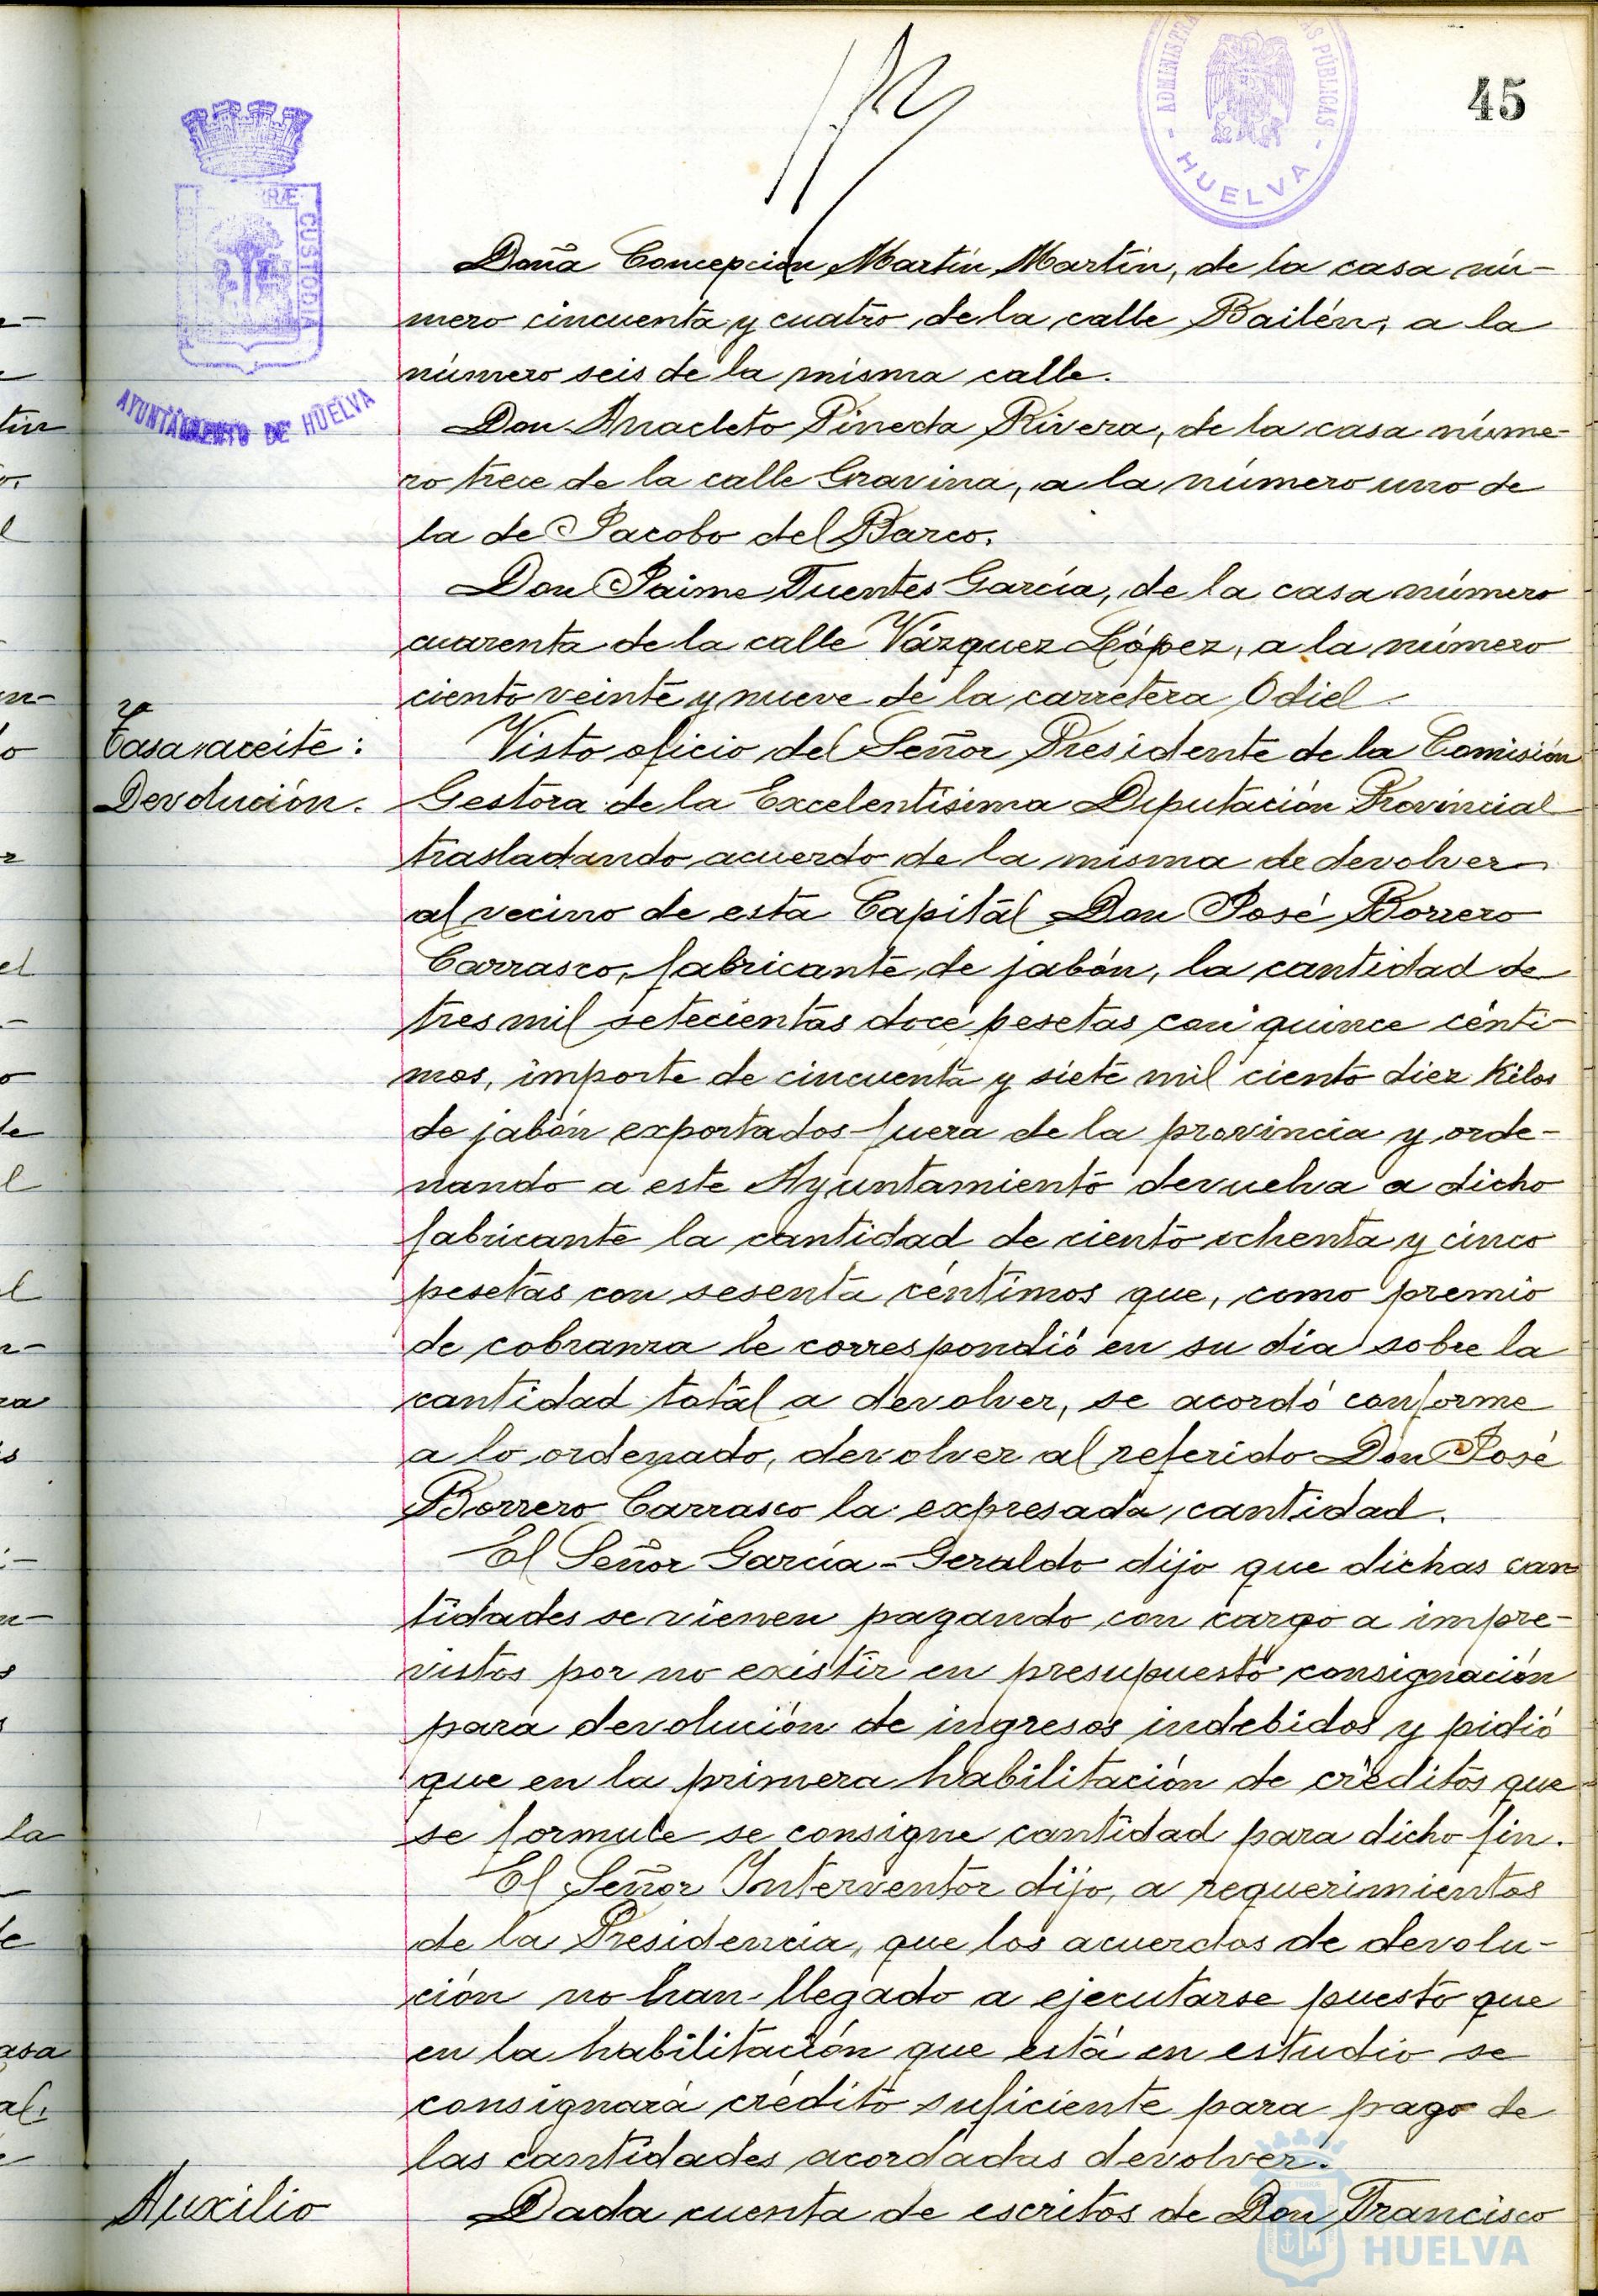 45
ADMINISTRA
AS PÚBLICAS
HUELVA
RÆ CUSTODIA
AYUNTAMIENTO DE HUELVA
Doña Concepción Martín Martín, de la casa nú-
mero cincuenta y cuatro de la calle Bailén, a la
número seis de la misma calle.
Don Anacleto Pineda Rivera, de la casa núme-
ro trece de la calle Gravina, a la número uno de
la de Jacobo del Barco.
Don Jaime Fuentes García, de la casa número
cuarenta de la calle Vázquez López, a la número
ciento veinte y nueve de la carretera Odiel.
Tasa aceite:
Devolución.
Visto oficio del Señor Presidente de la Comisión
Gestora de la Excelentísima Diputación Provincial
trasladando acuerdo de la misma de devolver
al vecino de esta Capital Don José Borrero
Carrasco, fabricante de jabón, la cantidad de
tres mil setecientas doce pesetas con quince cénti-
mos, importe de cincuenta y siete mil ciento diez kilos
de jabón exportados fuera de la provincia y orde-
nando a este Ayuntamiento devuelva a dicho
fabricante la cantidad de ciento ochenta y cinco
pesetas con sesenta céntimos que, como premio
de cobranza le correspondió en su día sobre la
cantidad total a devolver, se acordó conforme
a lo ordenado, devolver al referido Don José
Borrero Carrasco la expresada cantidad.
El Señor García-Geraldo dijo que dichas can
tidades se vienen pagando con cargo a impre-
vistos por no existir en presupuesto consignación
para devolución de ingresos indebidos y pidió
que en la primera habilitación de créditos que
se formule se consigne cantidad para dicho fin.
El Señor Interventor dijo, a requerimientos
de la Presidencia, que los acuerdos de devolu-
ción no han llegado a ejecutarse puesto que
en la habilitación que está en estudio se
consignará crédito suficiente para pago de
las cantidades acordadas devolver.
Auxilio
Dada cuenta de escritos de Don Francisco
HUELVA